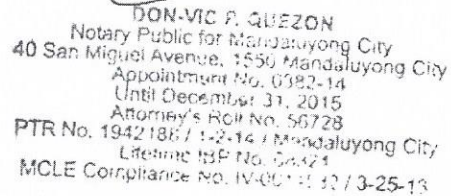 DON-VIC P. QUEZON
Notary Public for Mandaluyong City
40 San Miguel Avenue, 1550 Mandaluyong City
Appointment No. 0382-14
Until December 31, 2015
Attorney's Roll No. 56728
PTR No. 1942188 / 1-2-14 / Mandaluyong City
Lifetime IBP No.
MCLE Compliance No. / 3-25-13